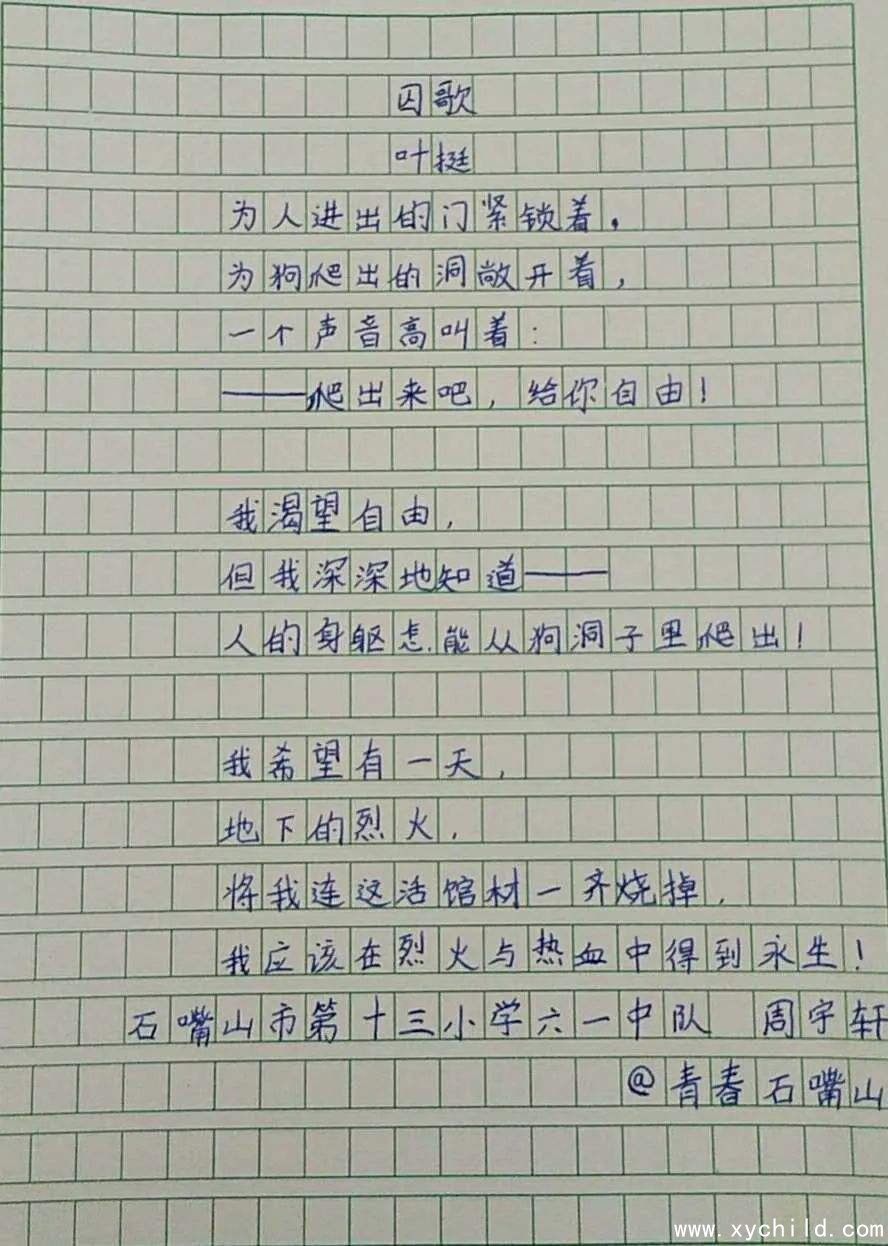 囚歌
叶挺
为人进出的门紧锁着,
为狗爬出的洞敞开着,
一个声音高叫着:
——爬出来吧,给你自由!
我渴望自由,
但我深深地知道——
人的身躯怎能从狗洞子里爬出!
我希望有一天,
地下的烈火,
将我连这活馆材一齐烧掉,
我应该在烈火与热血中得到永生!
石嘴山市第十三小学六一中队 周宇轩
@青春石嘴山
www.xychild.com